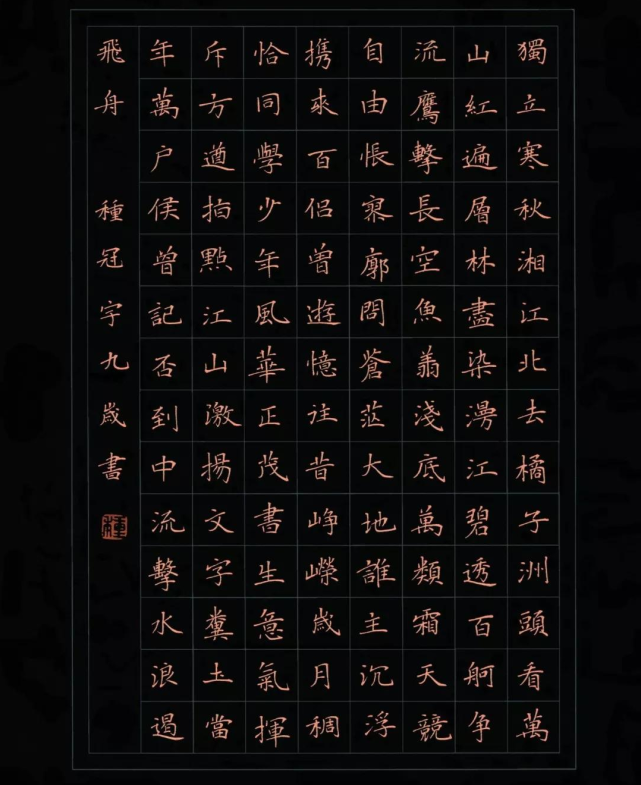 獨立寒秋湘江北去橘子洲頭看萬
山紅遍層林盡染漫江碧透百舸争
流鷹擊長空魚翔淺底萬類霜天競
自由悵寥廓問蒼茫大地誰主沉浮
携來百侣曾遊憶往昔崢嶸歲月稠
恰同學少年風華正茂書生意氣揮
斥方遒指點江山激揚文字糞土當
年萬户侯曾記否到中流擊水浪遏
飛舟 種冠宇九歲書